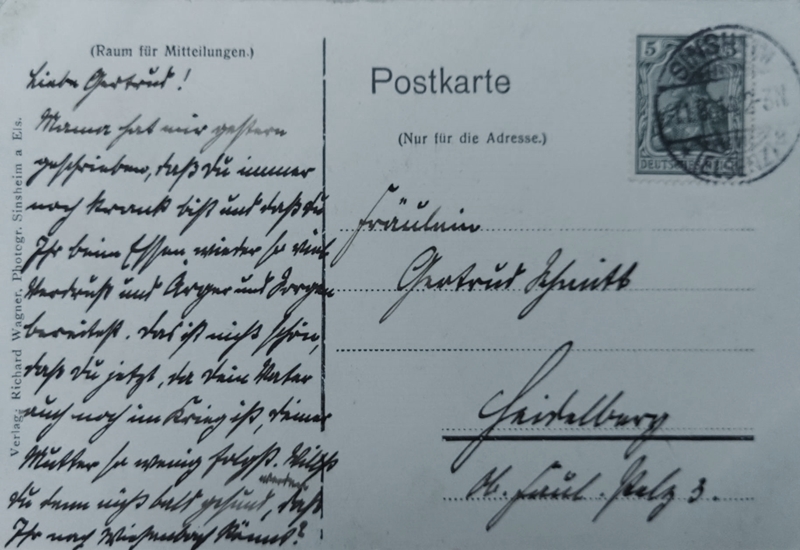 (Raum für Mitteilungen.)
Liebe Gertrud!
Mama hat mir gestern
geschrieben, daß du immer
noch krank bist und daß du
Ihr beim Essen wieder so viel
Verdruß und Ärger und Sorgen
bereitest. Das ist nicht schön,
daß du jetzt, da dein Vater
auch noch im Krieg ist, deiner
Mutter so wenig folgst. Willst
du denn nicht bald gesund werden, daß
Ihr nach Wiesenbach könnt?
Verlag: Richard Wagner, Photogr. Sinsheim a Els.
Postkarte
(Nur für die Adresse.)
5
SINSHEIM
(ELSENZ)
DEUTSCHES REICH
Fräulein
Gertrud Schmitt
Heidelberg
Ob. Faul. Pelz 3.